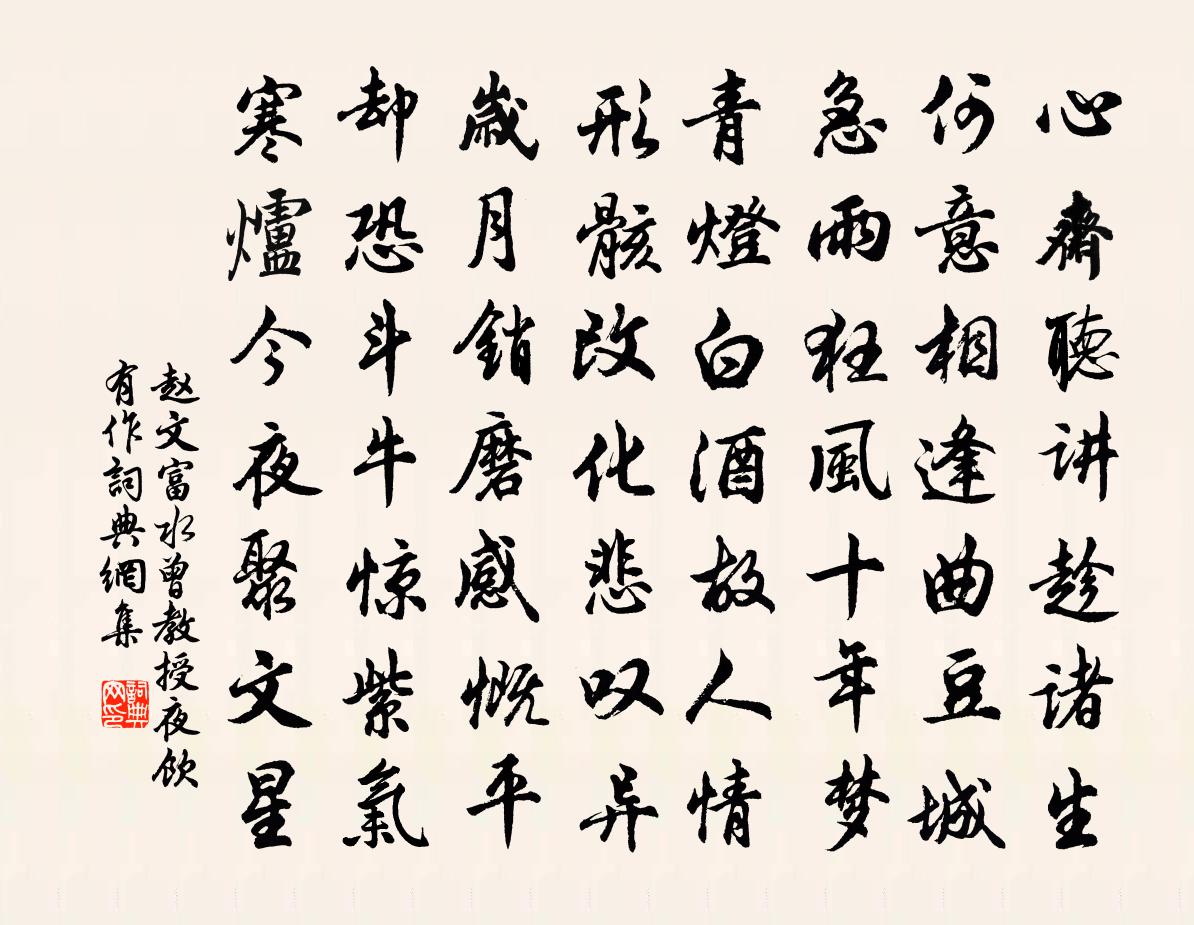 心齋聽讲趁诸生
何意相逢曲豆城
急雨狂風十年梦
青燈白酒故人情
形骸改化悲叹异
歲月銷磨感慨平
却恐斗牛惊紫氣
寒爐今夜聚文星
赵文富水曾教授夜飲
有作詞典網集
詞典網印